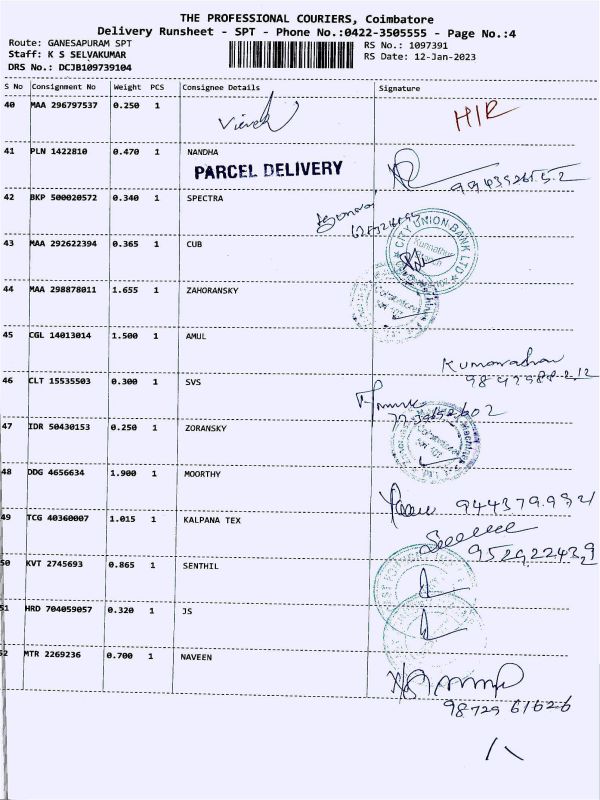 THE PROFESSIONAL COURIERS, Coimbatore
Delivery Runsheet - SPT - Phone No.:0422-3505555 - Page No.:4
Route: GANESAPURAM SPT
RS No.: 1097391
Staff: K S SELVAKUMAR
RS Date: 12-Jan-2023
DRS No.: DCJB109739104
S No Consignment No Weight PCS Consignee Details Signature
40 MAA 296797537 0.250 1
41 PLN 1422810 0.470 1 NANDHA
PARCEL DELIVERY
42 BKP 500020572 0.340 1 SPECTRA
43 MAA 292622394 0.365 1 CUB
CITY UNION BANK LTD
44 MAA 298878011 1.655 1 ZAHORANSKY
45 CGL 14013014 1.500 1 AMUL
46 CLT 15535503 0.300 1 SVS
47 IDR 50430153 0.250 1 ZORANSKY
48 DDG 4656634 1.900 1 MOORTHY
49 TCG 40360007 1.015 1 KALPANA TEX
50 KVT 2745693 0.865 1 SENTHIL
51 HRD 704059057 0.320 1 JS
52 MTR 2269236 0.700 1 NAVEEN
98729 61626